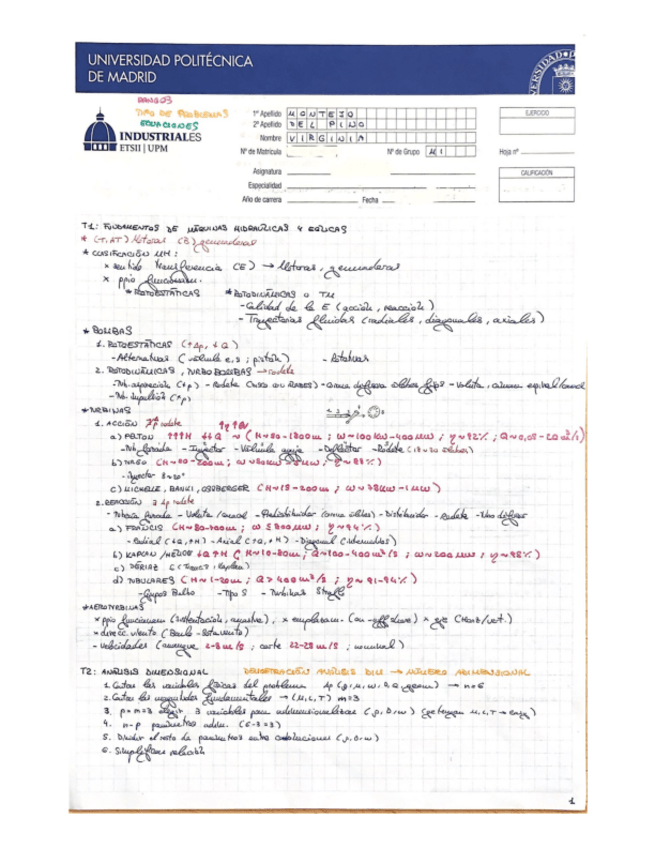 UNIVERSIDAD POLITÉCNICA
DE MADRID
RANGOS
TIPO DE PROBLEMAS
ECUACIONES
INDUSTRIALES
ETSII | UPM
1er Apellido MONTEJO
2º Apellido DEL PINO
Nombre VIRGINIA
Nº de Matrícula
Nº de Grupo M1
Asignatura
Especialidad
Año de carrera Fecha
EJERCICIO
Hoja nº
CALIFICACIÓN
T1: FUNDAMENTOS DE MÁQUINAS HIDRAÚLICAS Y EÓLICAS
* (T, AT) Motoras (B) generadoras
* CLASIFICACIÓN MH:
× sentido transferencia (E) → Motoras, generadoras
× ppio funcionam.
* ROTOESTÁTICAS * ROTODINÁMICAS o TM
- Calidad de la E (acción, reacción)
- Trayectorias fluidas (radiales, diagonales, axiales)
* BOMBAS
1. ROTOESTÁTICAS (↑Δp, ↓Q)
- Alternativas (válvula e,s ; pistón) - Rotativas
2. ROTODINÁMICAS, TURBOBOMBAS → rodete
- Tub. aspiración (↓p) - Rodete - Voluta
- Tub. impulsión (↑p)
* TURBINAS
1. ACCIÓN
a) PELTON ↑↑↑H ↓↓Q
- Tub. forzada - Inyector - Válvula aguja - Deflector - Rodete
b) TURGO
- Inyector
c) MICHELL, BANKI, OSSBERGER (H~15-200m ;
2. REACCIÓN
- Tubería forzada - Voluta / caracol - Predistribuidor - Distribuidor - Rodete - Tubo difusor
a) FRANCIS
- Radial (↓Q, ↑H) - Axial (↑Q, ↓H) - Diagonal (intermedias)
b) KAPLAN / HÉLICE ↑Q ↓H
c) DÉRIAZ (Francis, Kaplan)
d) TUBULARES (H~1-20m ; Q>400 m³/s ; η~91-94%)
- Grupos Bulbo - Tipo S - Turbinas Straflo
* AEROTURBINAS
× ppio funcionam (sustentación, arrastre), × emplazam. (on-offshore) × eje (Horiz/vert.)
× direcc. viento (Barlo - Sotavento)
- velocidades (arranque 2-5 m/s ; corte 22-25 m/s ; nominal)
T2: ANÁLISIS DIMENSIONAL DEMOSTRACIÓN ANÁLISIS DIM → NÚMERO ADIMENSIONAL
1. Contar las variables físicas del problema → n=6
2. Contar las magnitudes fundamentales → (M, L, T) m=3
3. p=m=3 elegir 3 variables para adimensionalizar (ρ, D, ω)
4. n-p parámetros adim. (6-3=3)
5. Dividir el resto de parámetros entre combinaciones (ρ, D, ω)
6. Simplificar relación
1